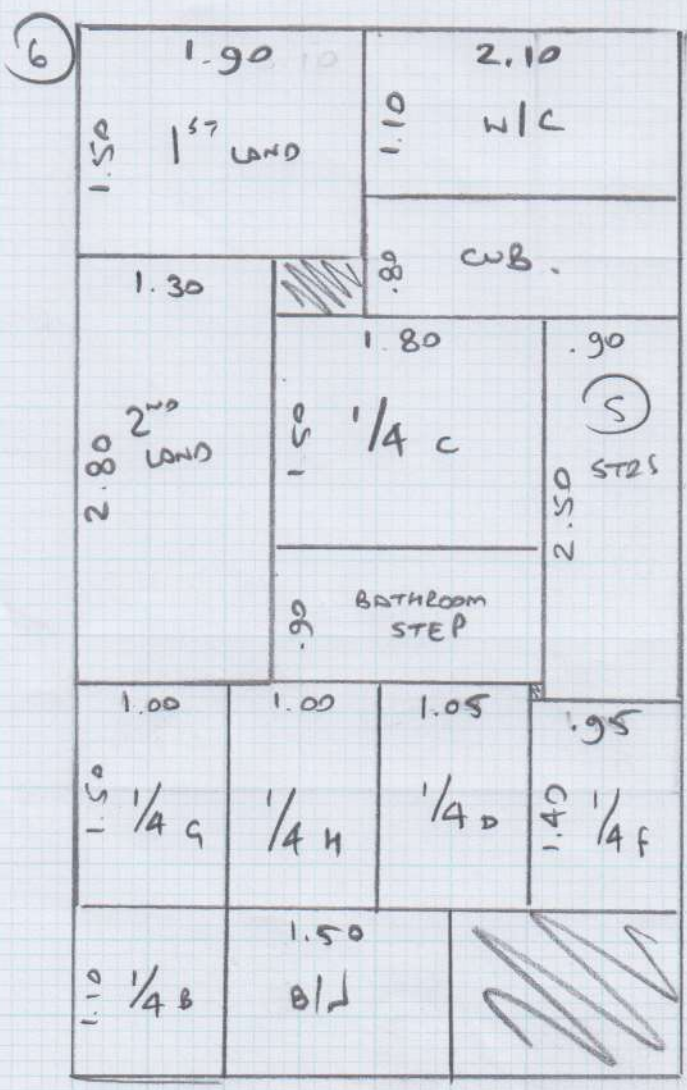 6
1.90
1.50
1ST LAND
2.10
1.10
W/C
.80
CUB.
1.30
2.80
2ND
LAND
1.80
1.50
1/4 C
.90
5
STRS
2.50
.90
BATHROOM
STEP
1.00
1.50
1/4 G
1.00
1/4 H
1.05
1/4 D
.95
1.40
1/4 F
1.10
1/4 B
1.50